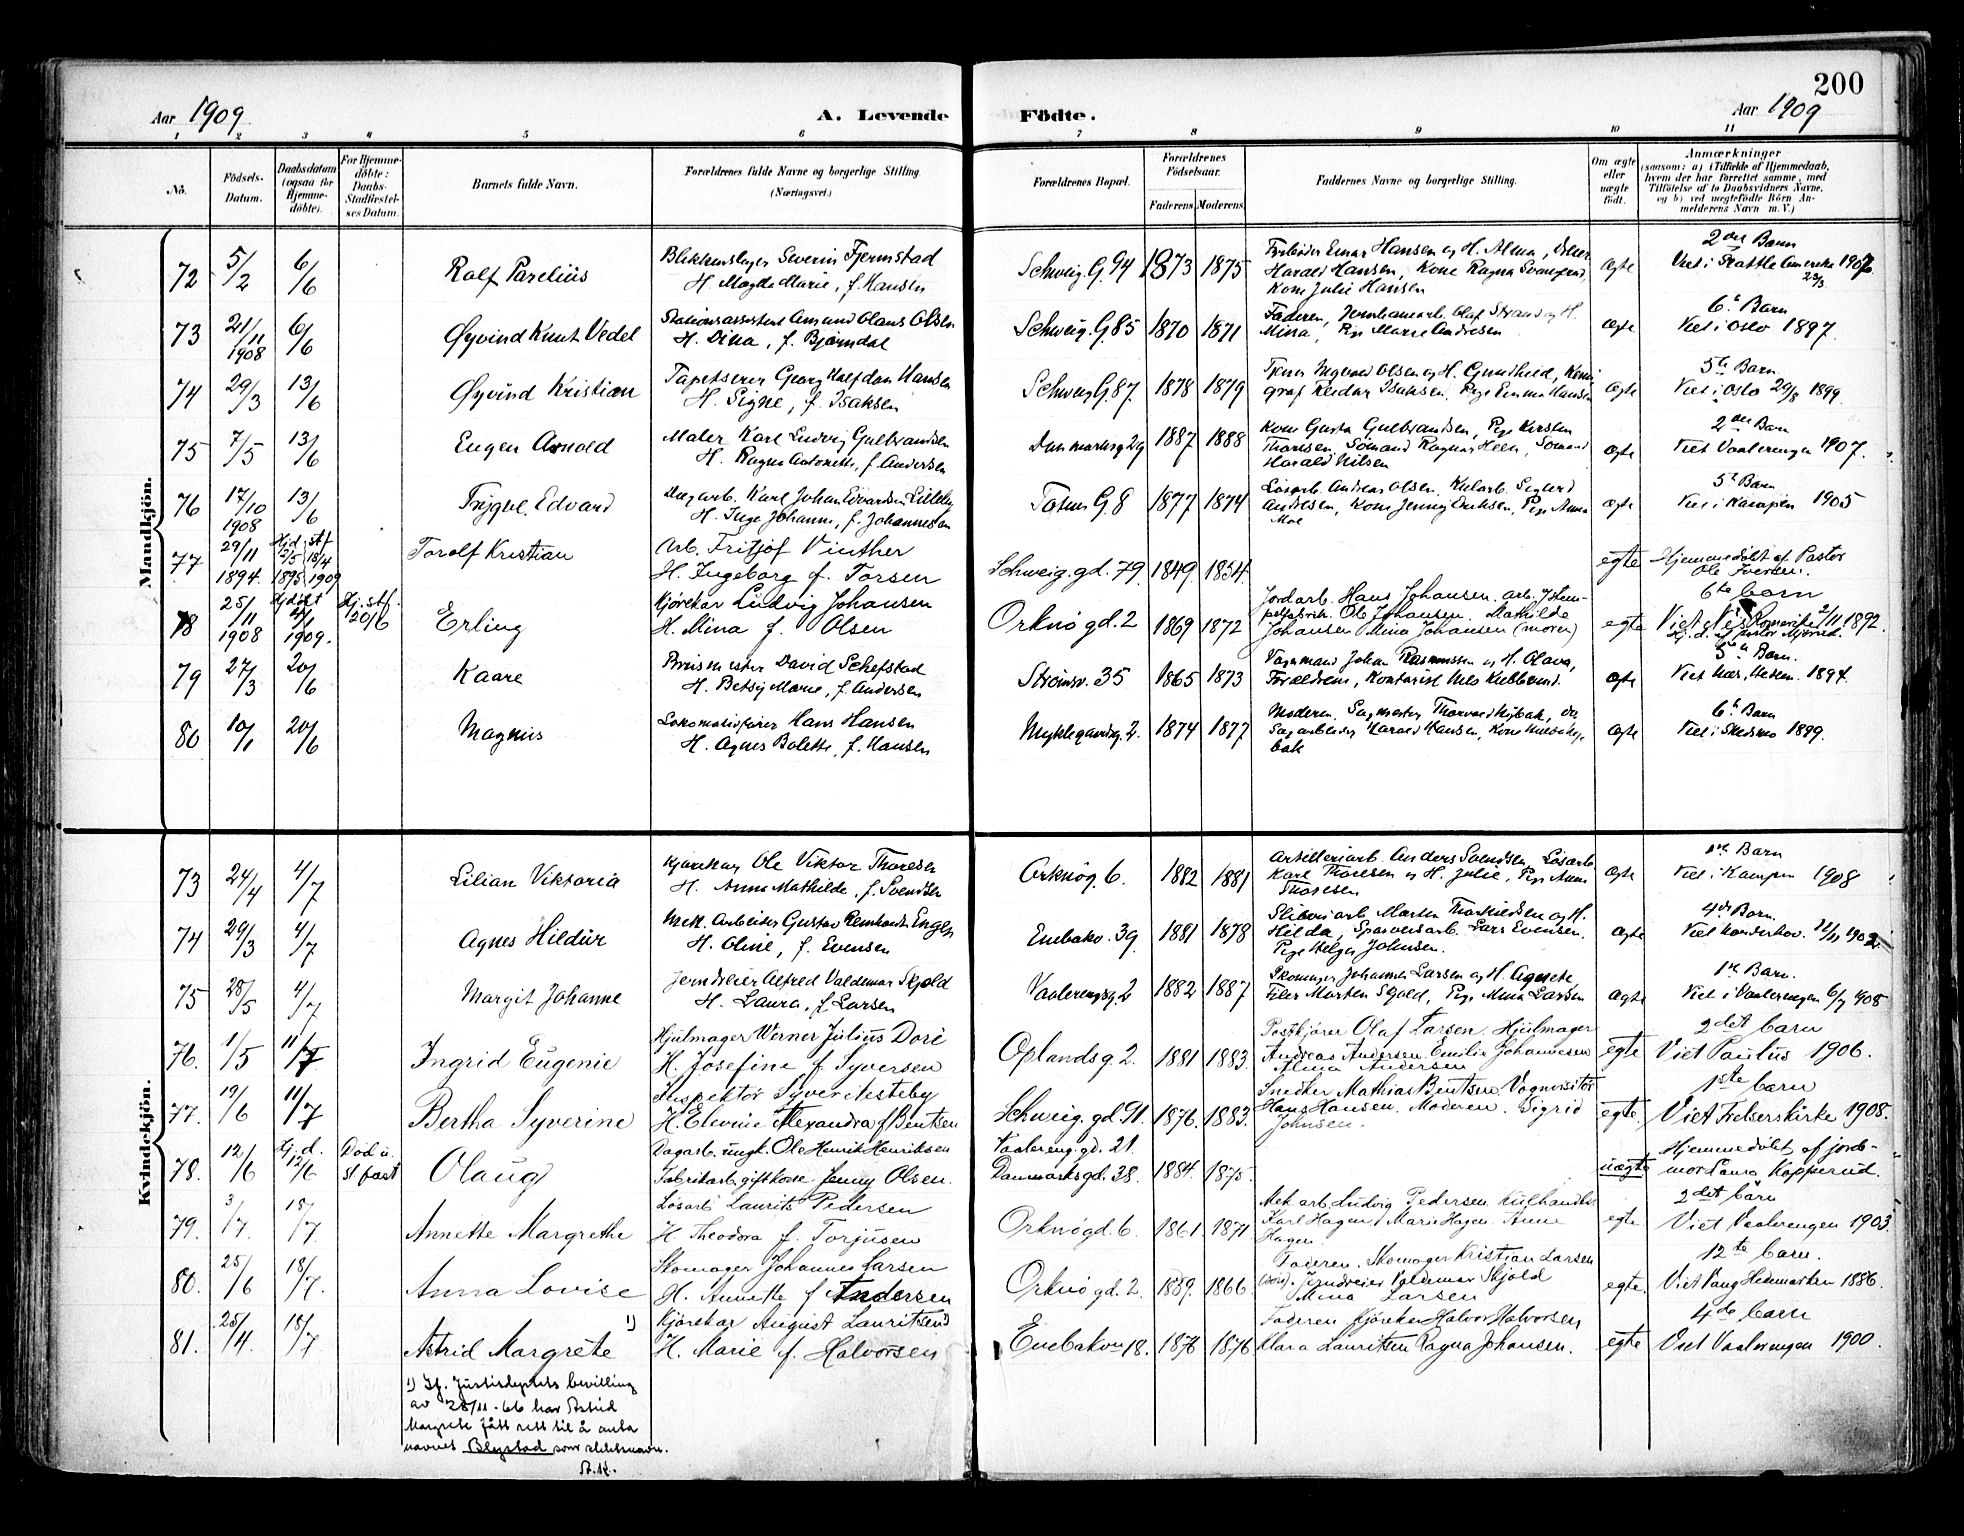 200
Aar 1909 A. Levende Födte. Aar 1909
1 2 3 4 5 6 7 8 9 10 11
No.
Födsels-Datum.
Daabsdatum (ogsaa for Hjemme-döbte).
For Hjemme-döbte: Daabs-Stadfæstel-ses Datum.
Barnets fulde Navn.
Forældrenes fulde Navne og borgerlige Stilling. (Næringsvei.)
Forældrenes Bopæl.
Forældrenes Födselsaar.
Faderens Moderens
Faddernes Navne og borgerlige Stilling.
Om ægte eller uægte födt.
Anmærkninger
(saasom: a) i Tilfælde af Hjemmedaab,
hvem der har forrettet samme, med
Tilföielse af to Daabsvidners Navne,
og b) ved uægtefödte Börn An-
melderens Navn m. V.)
Mandkjön.
72 5/2 6/6 Rolf Parelius
Blikkenslager Severin Fjermstad
H. Magda Marie, f. Hansen
Schweig. G. 94 1873 1875
Harald Hansen, Kone Ragna
Kone Julie Hansen
ægte
2det Barn
Viet i Seattle Amerika 1907
73 21/11 1908 6/6 Øyvind Knut Vedel
Stationsassistent Amund Olaus Olsen
H. Dina, f. Bjørndal
Schweig. G. 85 1870 1871
Faderen, Jernbanearb. Olaf Strand og H.
Mina, Pige Marie Andresen
ægte
6te Barn
Viet i Oslo 1897.
74 29/3 13/6 Øyvind Kristian
Tapetserer Georg Halfdan Hansen
H. Signe, f. Isaksen
Schweig G. 87. 1878 1879
graf Reidar Isaksen, Pige Emma Hansen
ægte
5te Barn
Viet i Oslo 29/8 1899.
75 7/5 13/6 Eugen Arnold
Maler Karl Ludvig Gulbrandsen
H. Ragna Antonette, f. Andersen
Danmarksg 29 1887 1888
Kone Gusta Gulbrandsen, Pige Kirsten
Thoresen, Sømand Ragnar Heen, Sømand
Harald Nilsen
ægte
2det Barn
Viet Vaalerengen 1907.
76 17/10 1908 13/6 Trygve Edvard
Dagarb. Karl Johan Edvardsen Lilleby
H. Inga Johanne, f. Johannesen
Totens G. 8 1877 1874
Løsarb. Andreas Olsen, Kularb. Sigurd
Andresen, Kone Jenny Eriksen, Pige Anna
Moe
ægte
5te Barn
Viet i Kampen 1905
77 29/11 1894. Hjd. 12/5 1895 stf 18/4 1909
Torolf Kristian
Arb. Fritjof Vinther
H. Ingeborg f. Torsen
Schweig. gd. 79. 1849 1854
egte
Hjemmedøbt af Pastor
Ole Iversen.
78 25/11 1908 Hjdøbt 2/1 1909. Hj. stf. 20/6
Erling
Kjørekar Ludvig Johansen
H. Mina f. Olsen
Orknø gd. 2 1869 1872
Jordarb. Hans Johansen. arb.
Ole Johansen. Mathilde
Johansen Mina Johansen (moren)
egte
6te barn
Viet Nes Romerike 2/11 1892.
79 27/3 20/6 Kaare
David Schefstad
H. Betsy Marie, f. Andersen
Strømsv. 35 1865 1873
Vognmand Johan Rasmussen og H. Olava,
Forældrene, Kontorist
ægte
5te Barn.
1894.
80 10/1 20/6 Magnus
Lokomotivfører Hans Hansen
H. Agnes Bolette, f. Hansen
Myklegaardsg. 2. 1874 1877
Moderen, Sagmester Thorvald Nybak, do
Sagarbeider Harald Hansen, Kone
bak
ægte
6te Barn
Viet i Skedsmo 1899.
Kvindekjön.
73 24/4 4/7 Lilian Viktoria
Kjørekar Ole Viktor Thoresen
H. Anna Mathilde, f. Svendsen
Orknøg. 6. 1882 1881
Artilleriarb. Anders Svendsen, Løsarb
Karl Thoresen og H. Julie, Pige Anna
Thoresen
ægte
1ste Barn
Viet i Kampen 1908
74 29/3 4/7 Agnes Hildur
Mek. Arbeider Gustav Reinhardt Engen
H. Oline, f. Evensen
Enebakv. 39. 1881 1878
Sliberiarb Martin Thorkildsen og H.
Hilda, Sporveisarb. Lars Evensen,
Pige Helga Johnsen.
ægte
4de Barn.
1902
75 28/5 4/7 Margit Johanne
Jerndreier Alfred Valdemar Skjold
H. Laura, f. Larsen
Vaalerengsg. 2 1882 1887
Skomager Johannes Larsen og H. Agnete,
Filer Morten Skjold, Pige Mina Larsen
ægte
1ste Barn.
Viet i Vaalerengen 6/9 1908
76. 1/5 11/7 Ingrid Eugenie
Hjulmager Werner Julius Doré
H. Josefine f Syversen
Oplandsg. 2. 1881 1883.
Postkjører Olaf Larsen. Hjulmager
Andreas Andersen. Emilie Johannesen
Alma Andersen
egte
2det barn
Viet Paulus 1906.
77. 19/6 11/7 Bertha Syverine
Inspektør Syver Nesteby
H. Elevine Alexandra f Bentsen
Schweig. gd. 91. 1876. 1883.
Snedker Mathias Bentsen. Vognvisitør
Hans Hansen. Moderen. Sigrid
Johnsen.
egte
1ste barn
Viet Frelserskirke 1908.
78. 12/6 Hj. d. 12/6 Død u. stfæst
Olaug
Dagarb. ungk. Ole Henrik Henriksen
Fabrikarb. gift kone Jenny Olsen.
Vaalereng. gd. 21.
Danmarksgd. 38. 1884. 1875.
uægte
Hjemmedøbt af jord-
mor Laura Kopperud.
79. 3/7 18/7 Annette Margrethe
Løsarb Laurits Pedersen
H Theodora f. Torjusen
Orknøgd. 6. 1861 1871
Mek arb Ludvig Pedersen Kulhandler
Karl Hagen, Marie Hagen. Anne
Hagen
egte
2det barn
Viet Vaalerengen 1903.
80. 25/6 18/7 Anna Lovise
Skomager Johannes Larsen
H. Annette f Andersen
Orknø gd. 2. 1859. 1866
Faderen. Skomager Kristian Larsen
Jerndreier Valdemar Skjold
Mina Larsen
egte.
12te barn.
Viet Vang Hedemarken 1886.
81. 25/4 18/7 Astrid Margrete 1)
Kjørekar August Lauritsen
H. Marie f. Halvorsen
Enebakvn 18. 1876 1876
Faderen Kjørekar Halvor Halvorsen
Klara Lauritsen Ragna Johansen.
egte
4de barn
Viet Vaalerengen 1900.
1) If. Justisdeptets bevilling
av 28/11-66 har Astrid
Margrete fått rett til å anta
navnet Blystad som slektsnavn.
A.K.